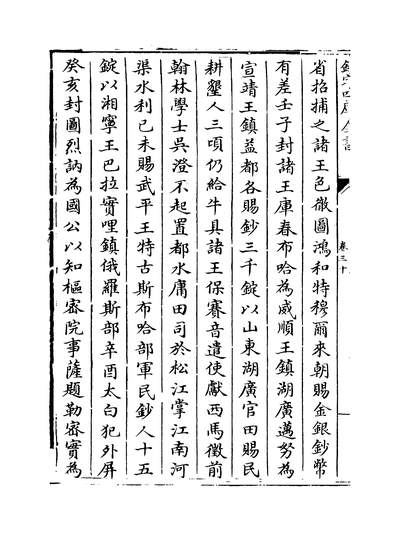 欽定四庫全書
卷三十
省招捕之諸王色徹圖鴻和特穆爾來朝賜金銀鈔幣
有差壬子封諸王庫春布哈為威順王鎮湖廣邁努為
宣靖王鎮益都各賜鈔三千錠以山東湖廣官田賜民
耕墾人三頃仍給牛具諸王保賽音遣使獻西馬徵前
翰林學士吳澄不起置都水庸田司於松江掌江南河
渠水利己未賜武平王特古斯布哈部軍民鈔人十五
錠以湘寧王巴拉實哩鎮俄羅斯部辛酉太白犯外屏
癸亥封圖烈訥為國公以知樞密院事薩題勒密實為